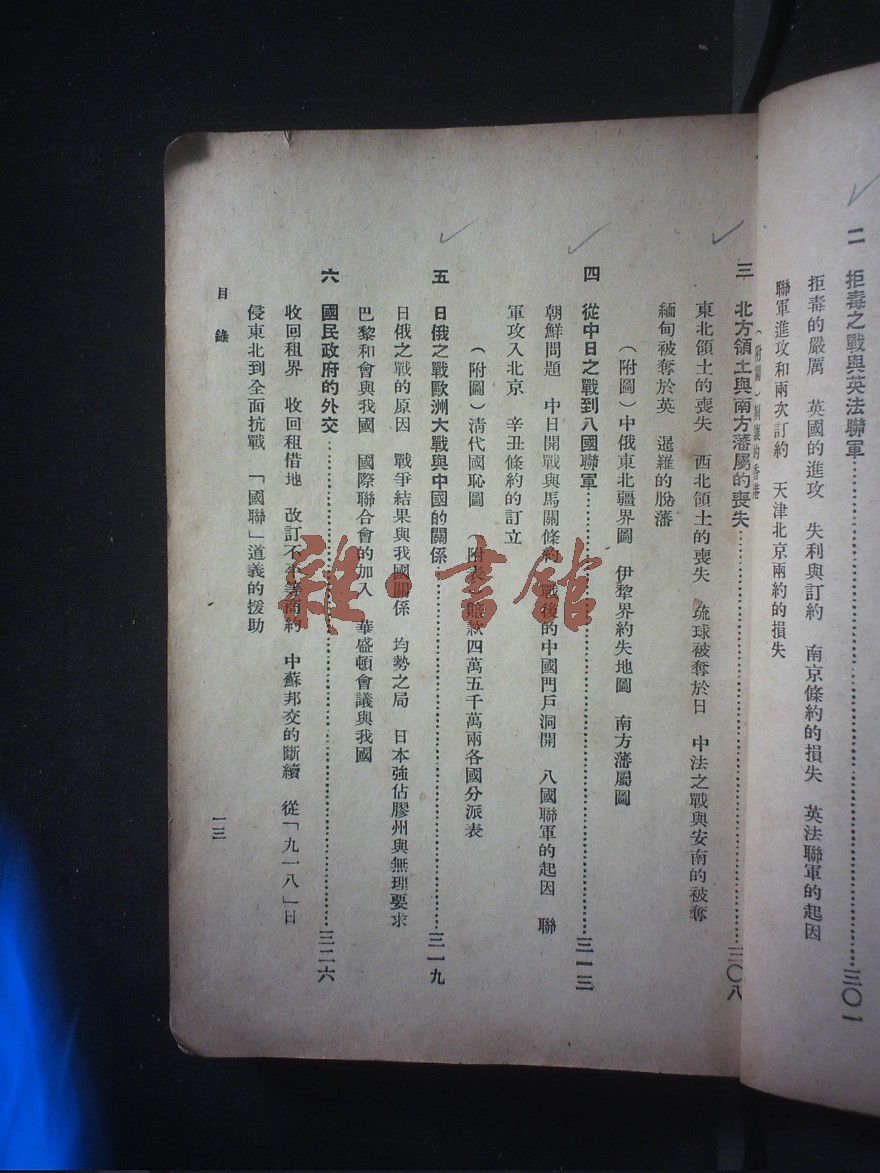 二 拒毒之戰與英法聯軍……三〇一
拒毒的嚴厲 英國的進攻 失利與訂約 南京條約的損失 英法聯軍的起因
聯軍進攻和兩次訂約 天津北京兩約的損失
（附圖）割讓的香港
三 北方領土與南方藩屬的喪失……三〇八
東北領土的喪失 西北領土的喪失 琉球被奪於日 中法之戰與安南的被奪
緬甸被奪於英 暹羅的脫藩
（附圖）中俄東北疆界圖 伊犂界約失地圖 南方藩屬圖
四 從中日之戰到八國聯軍……三一三
朝鮮問題 中日開戰與馬關條約 戰後的中國門戶洞開 八國聯軍的起因 聯
軍攻入北京 辛丑條約的訂立
（附圖）清代國恥圖 （附表）賠款四萬五千萬兩各國分派表
五 日俄之戰歐洲大戰與中國的關係……三一九
日俄之戰的原因 戰爭結果與我國關係 均勢之局 日本強佔膠州與無理要求
巴黎和會與我國 國際聯合會的加入 華盛頓會議與我國
六 國民政府的外交……三二六
收回租界 收回租借地 改訂不平等商約 中蘇邦交的斷續 從「九一八」日
侵東北到全面抗戰 「國聯」道義的援助
目錄 一三
雜·書館